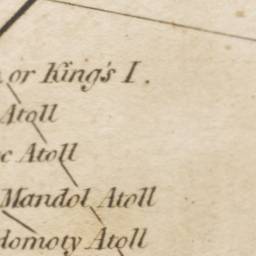 or King's I.
Atoll
Atoll
Mandol Atoll
domoty Atoll